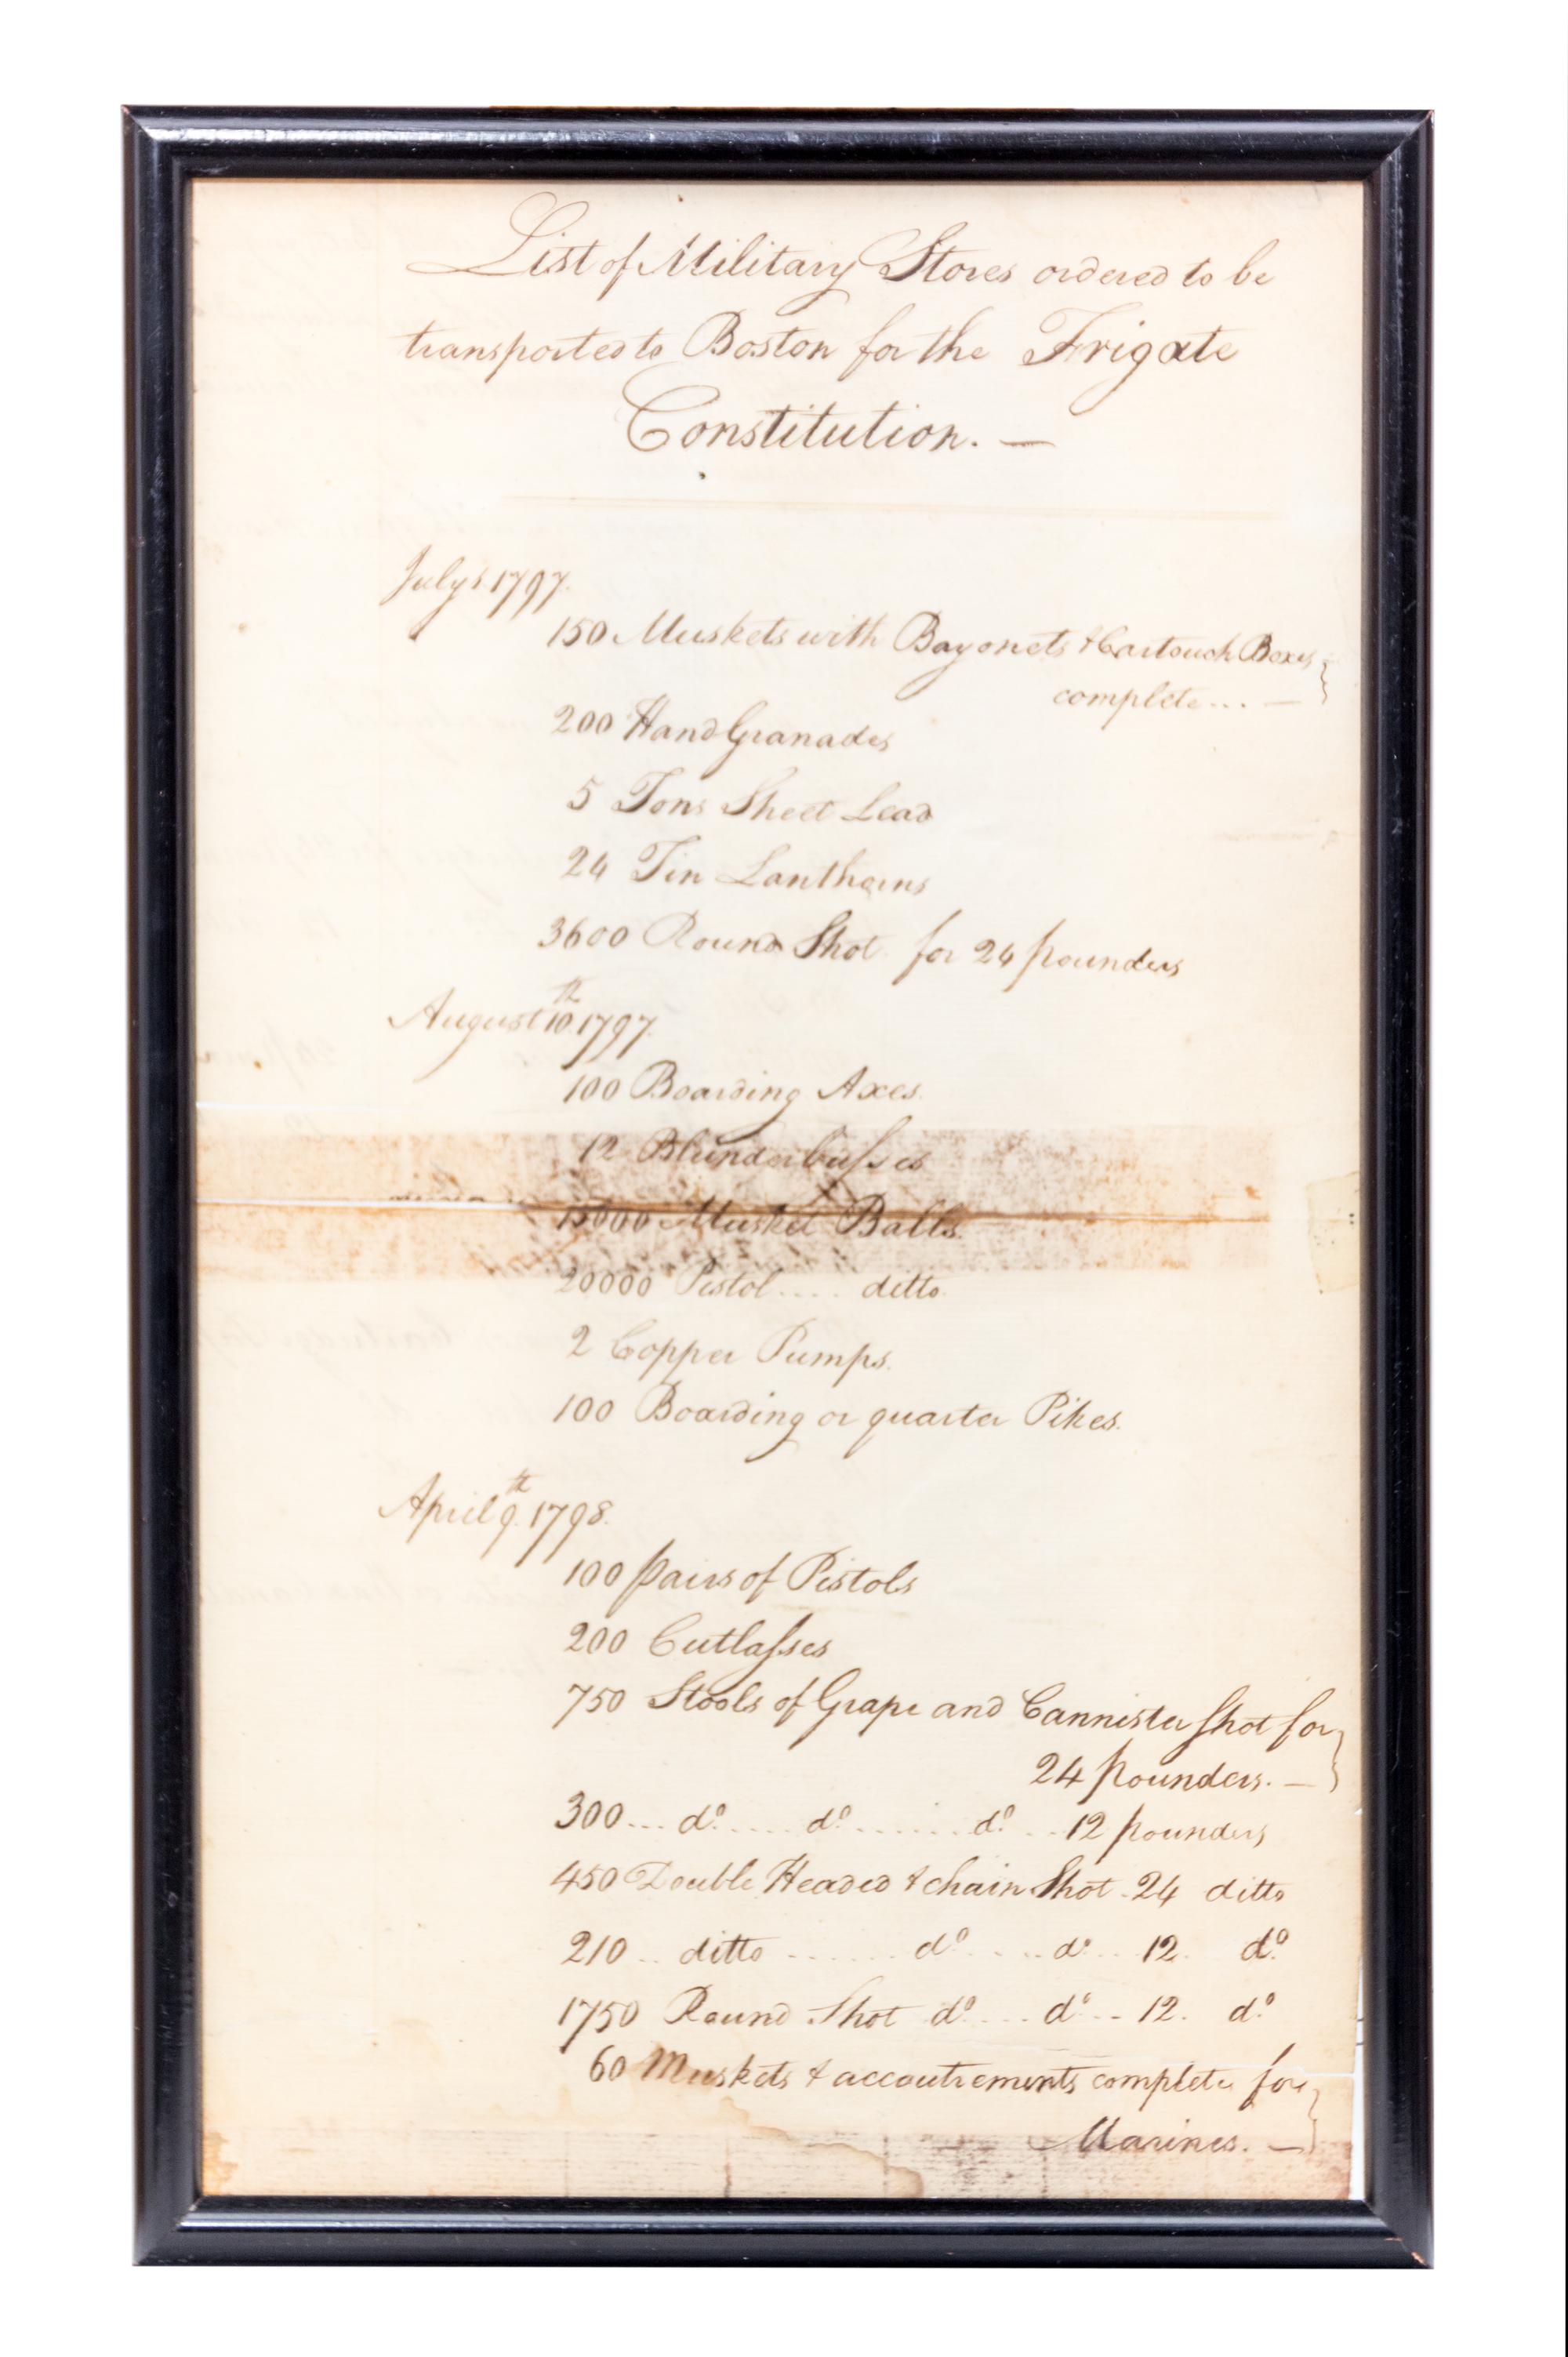 List of Military Stores ordered to be
transported to Boston for the Frigate
Constitution. —
July 1797.
150 Muskets with Bayonets & Cartouch Boxes
complete ... —
200 Hand Granades
5 Tons Sheet Lead
24 Tin Lanthorns
3600 Round Shot for 24 pounders
August 10th 1797.
100 Boarding Axes.
12 Blunderbusses
15000 Musket Balls.
20000 Pistol .... ditto.
2 Copper Pumps.
100 Boarding or quarter Pikes.
April 9th 1798.
100 pairs of Pistols
200 Cutlasses
750 Stools of Grape and Cannister shot for
24 pounders. —
300 ... do. .... do. ...... do. .. 12 pounders
450 Double Headed & chain Shot . 24 ditto
210 .. ditto ...... do. .... do. .. 12. do.
1750 Round Shot do. ... do. .. 12. do.
60 Muskets & accoutrements complete for
Marines. —